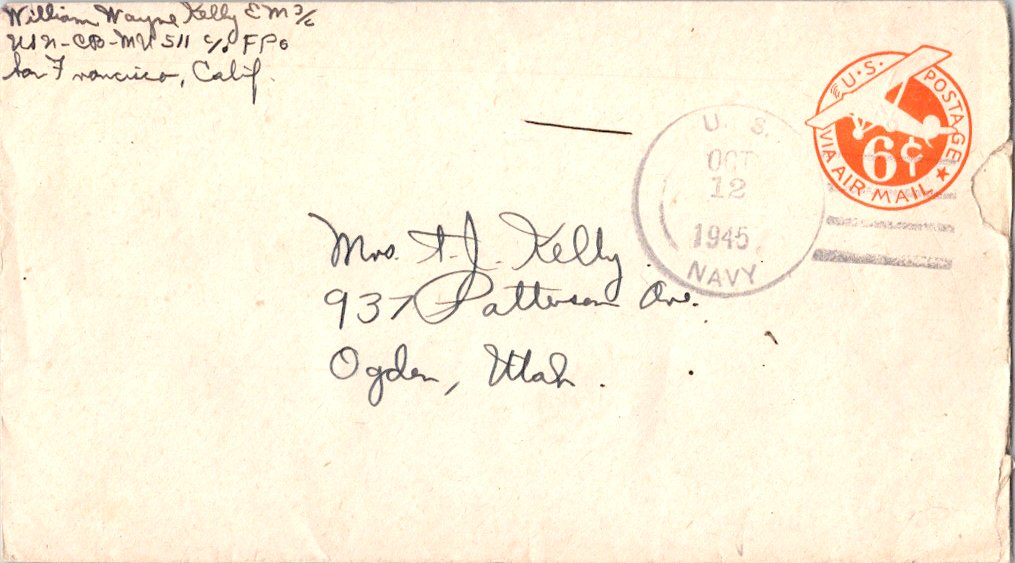 William Wayne Kelly EM 3/c
USN-CB-MU 511 c/o FPO
San Francisco, Calif.
U.S. POSTAGE
VIA AIR MAIL
6¢
U. S.
OCT
12
1945
NAVY
Mrs. A. J. Kelly
937 Patterson Ave.
Ogden, Utah.